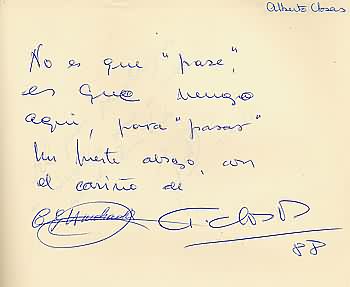 Alberto Closas
No es que "pase",
es que vengo
aquí, para "pasar"
un fuerte abrazo, con
el cariño de
A. Closas
88